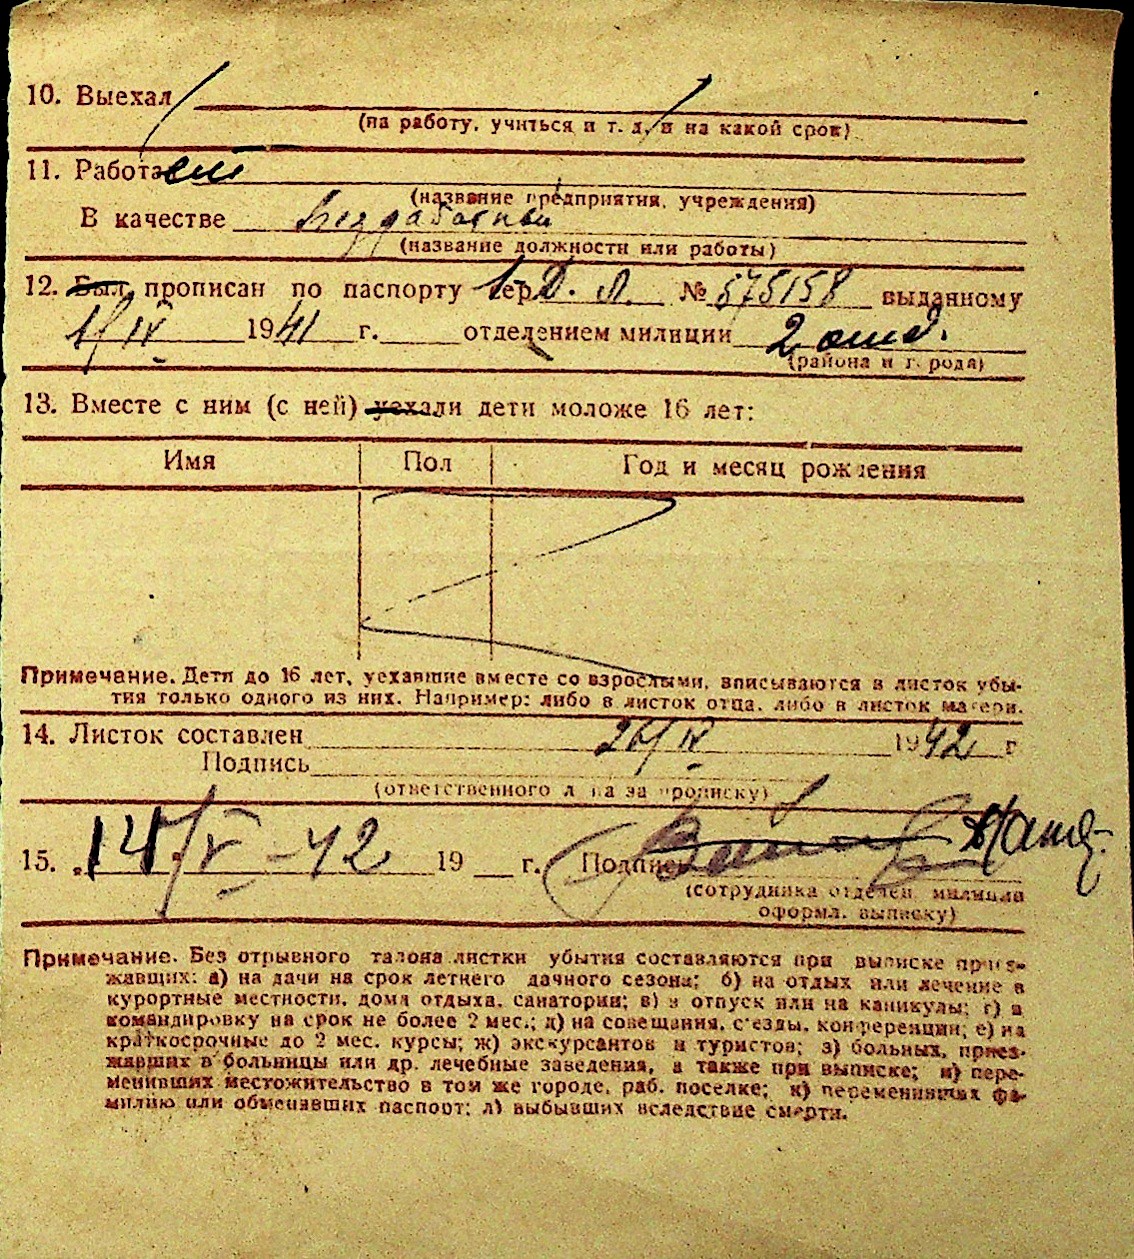 10. Выехал
(на работу, учиться и т. д. и на какой срок)
11. Работает
(название предприятия, учреждения)
В качестве
(название должности или работы)
12. Был прописан по паспорту сер. Д. Л. № 575158 выданному
1/IV 1941 г. отделением милиции 2 отд.
(района и города)
13. Вместе с ним (с ней) уехали дети моложе 16 лет:
Имя Пол Год и месяц рождения
Примечание. Дети до 16 лет, уехавшие вместе со взрослыми, вписываются в листок убы-
тия только одного из них. Например: либо в листок отца, либо в листок матери.
14. Листок составлен 24/IV 1942 г
Подпись
(ответственного лица за прописку)
15. „14/V-42 19 г. Подпись
(сотрудника отделен. милиции
оформл. выписку)
Примечание. Без отрывного талона листки убытия составляются при выписке приез-
жавших: а) на дачи на срок летнего дачного сезона; б) на отдых или лечение в
курортные местности, дома отдыха, санатории; в) в отпуск или на каникулы; г) в
командировку на срок не более 2 мес.; д) на совещания, с'езды, конференции; е) на
краткосрочные до 2 мес. курсы; ж) экскурсантов и туристов; з) больных, приез-
жавших в больницы или др. лечебные заведения, а также при выписке; и) пере-
менивших местожительство в том же городе, раб. поселке; к) переменивших фа-
милию или обменявших паспорт; л) выбывших вследствие смерти.